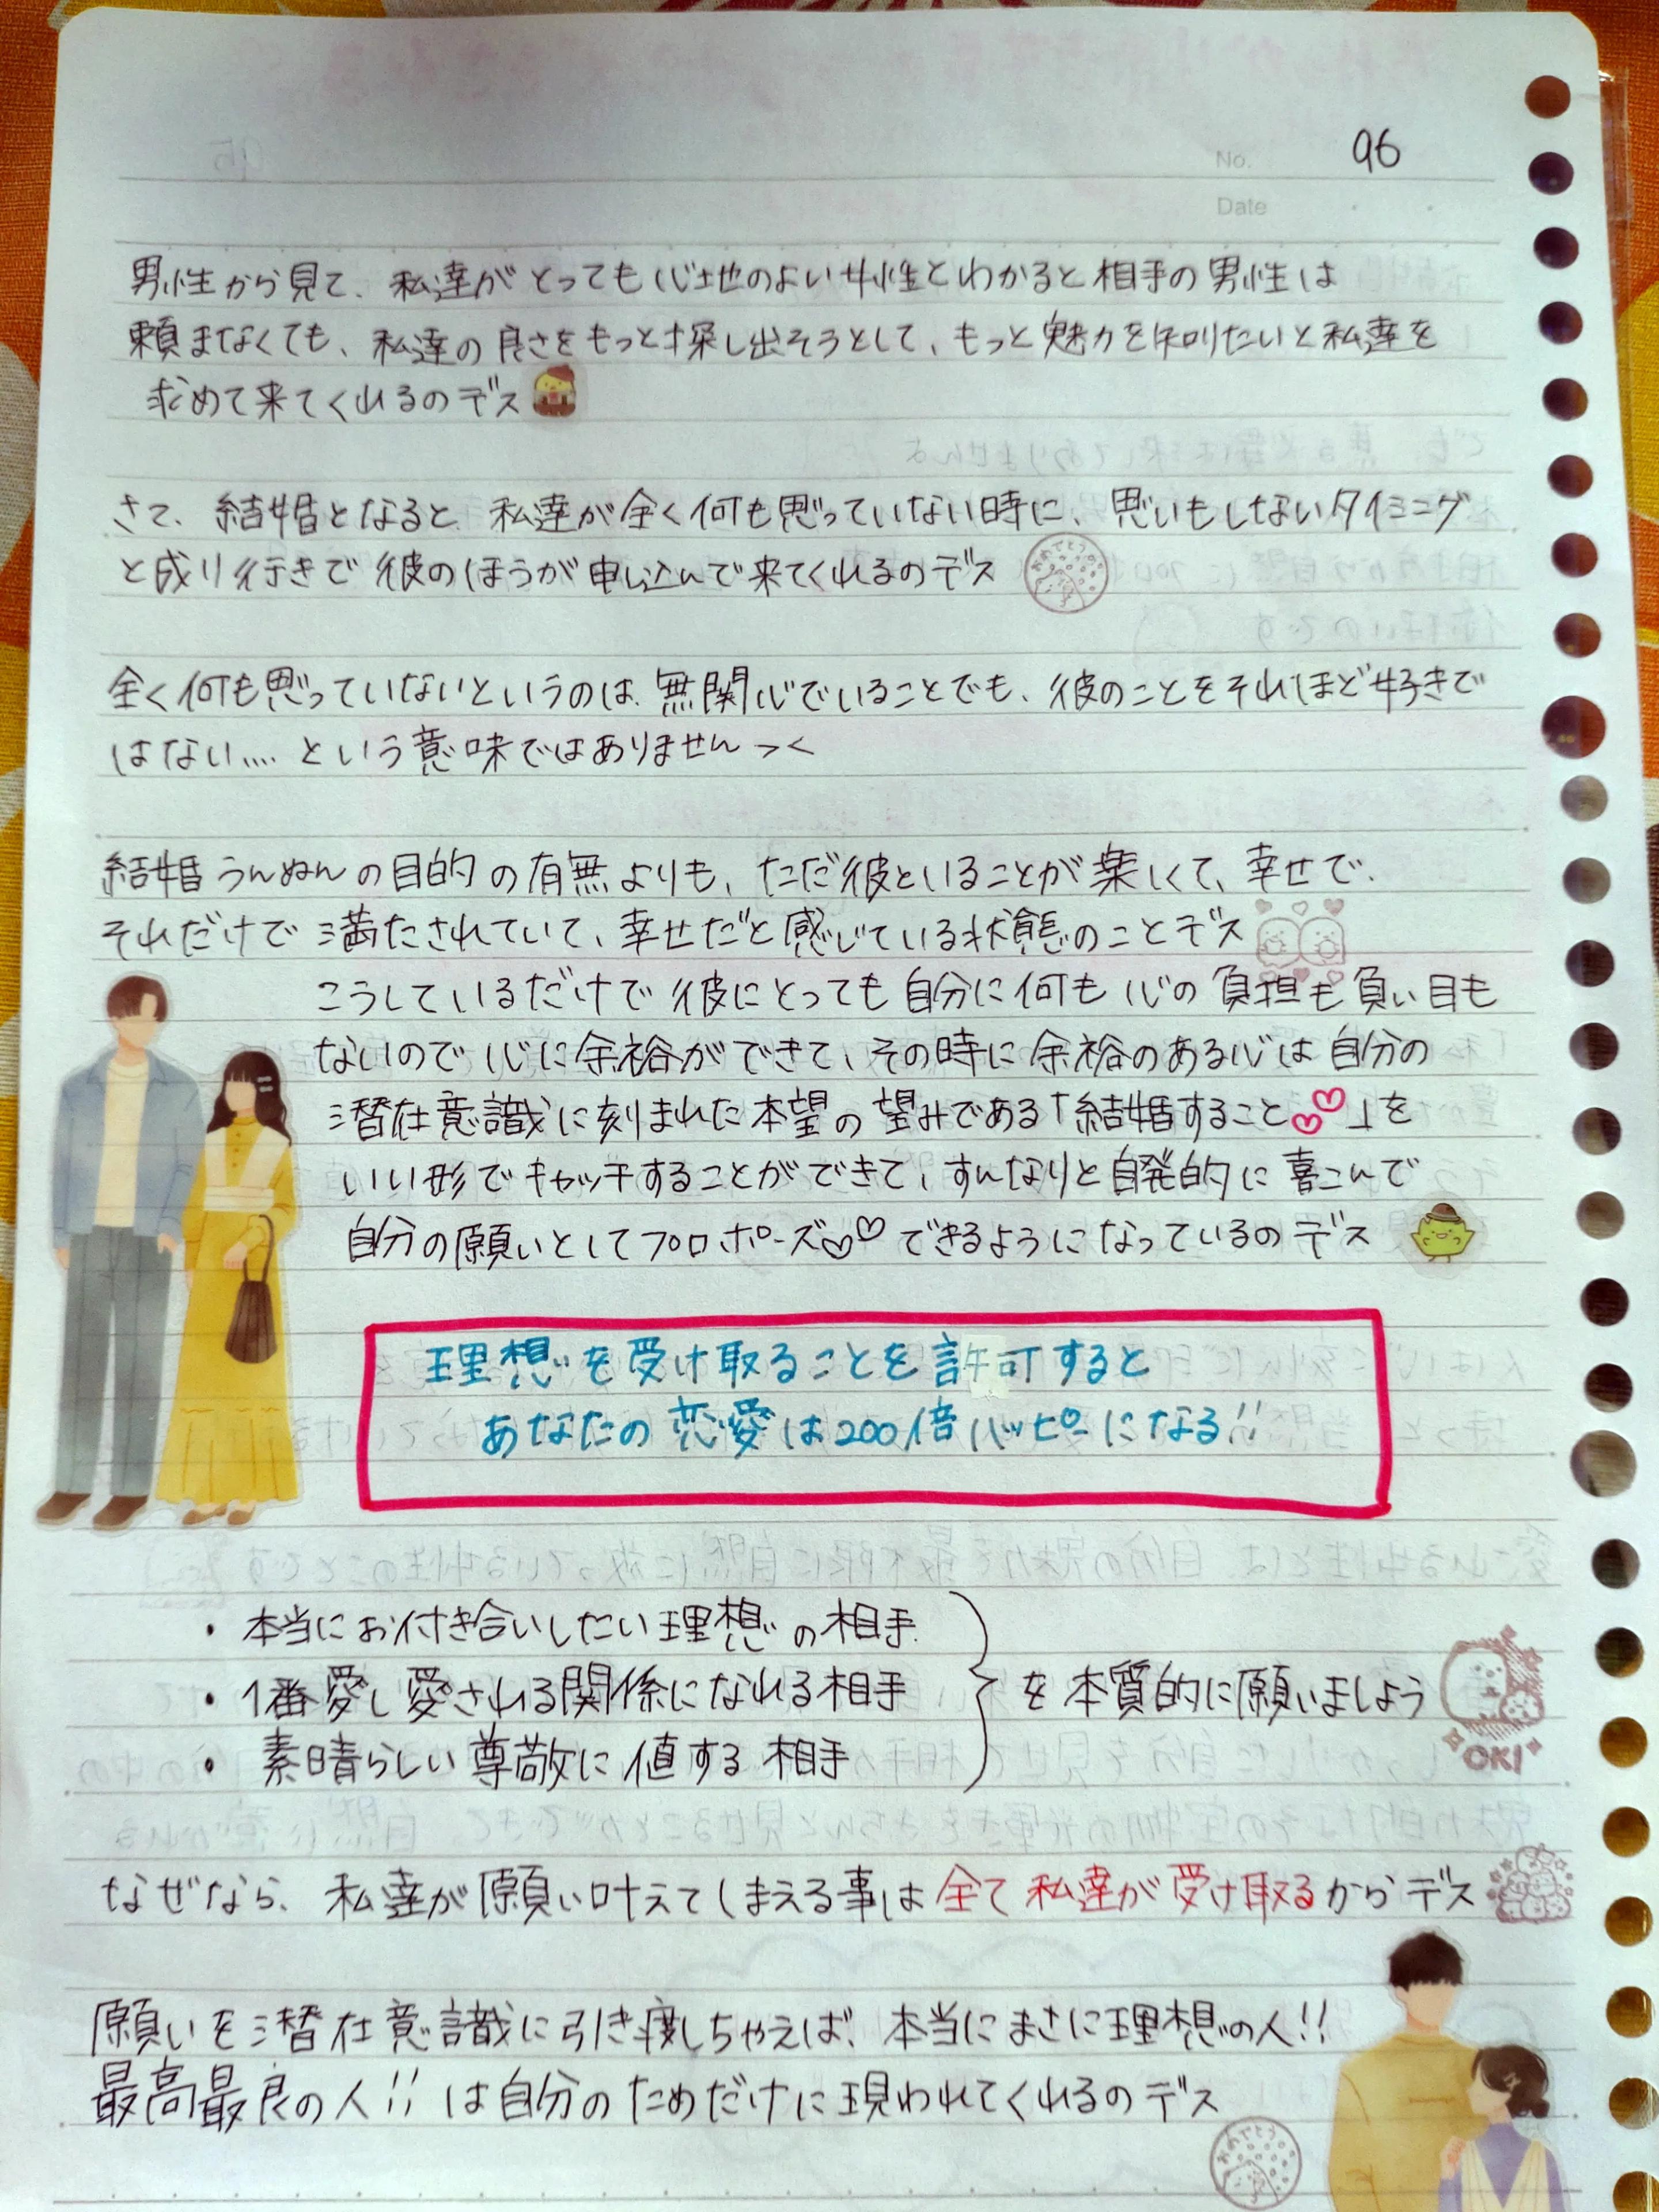 No. 96
Date
男性から見て、私達がとっても心地のよい女性とわかると相手の男性は
頼まなくても、私達の良さをもっと探し出そうとして、もっと魅力を知りたいと私達を
求めて来てくれるのデス
さて、結婚となると、私達が全く何も思っていない時に、思いもしないタイミング
と成り行きで彼のほうが申し込んで来てくれるのデス
おめでとう
全く何も思っていないというのは、無関心でいることでも、彼のことをそれほど好きで
はない.... という意味ではありません ><
結婚うんぬんの目的の有無よりも、ただ彼といることが楽しくて、幸せで、
それだけで満たされていて、幸せだと感じている状態のことデス
こうしているだけで彼にとっても自分に何も心の負担も負い目も
ないので心に余裕ができて、その時に余裕のある心は自分の
潜在意識に刻まれた本望の望みである「結婚すること♡♡」を
いい形でキャッチすることができて、すんなりと自発的に喜こんで
自分の願いとしてプロポーズ♡♡できるようになっているのデス
理想を受け取ることを許可すると
あなたの恋愛は200倍ハッピーになる!!
・本当にお付き合いしたい理想の相手
・1番愛し愛される関係になれる相手
・素晴らしい尊敬に値する相手
を本質的に願いましょう
OK!
なぜなら、私達が願い叶えてしまえる事は全て私達が受け取るからデス
願いを潜在意識に引き渡しちゃえば、本当にまさに理想の人!!
最高最良の人!! は自分のためだけに現われてくれるのデス
おめでとう